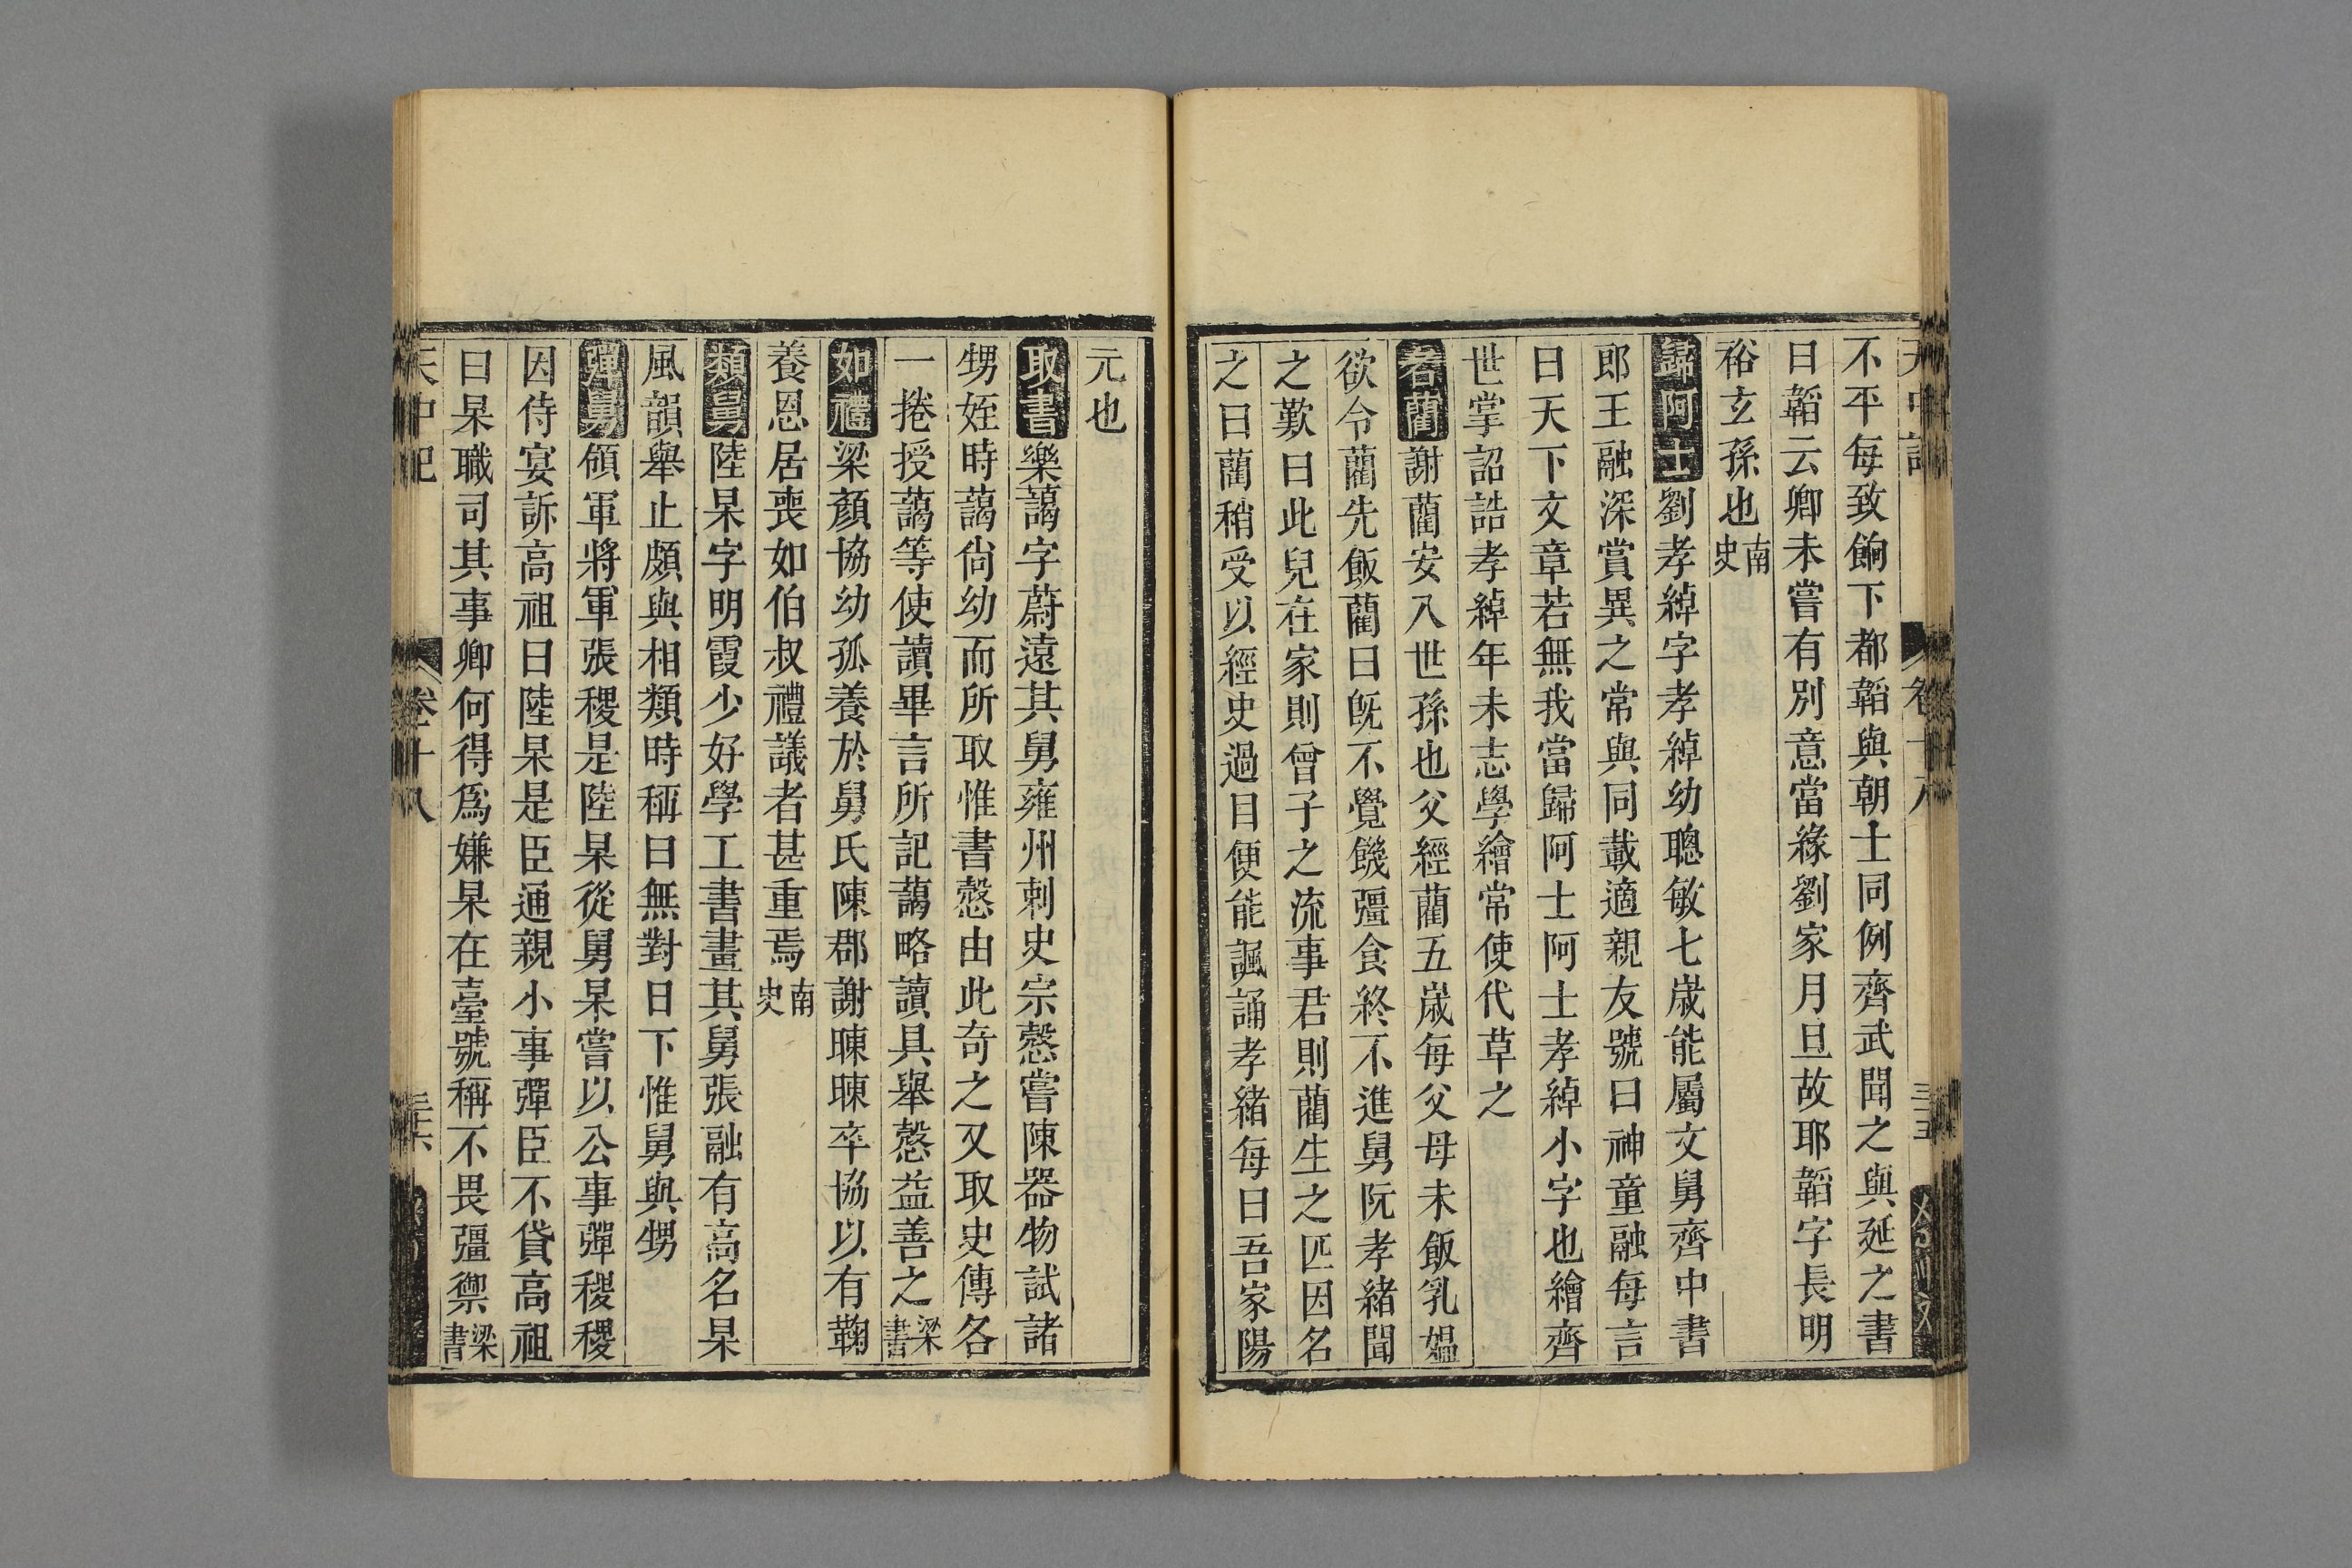 不平每致餉下都韜與朝士同例齊武聞之與延之書
曰韜云卿未嘗有別意當緣劉家月旦故耶韜字長明
裕玄孫也南史
歸阿士劉孝綽字孝綽幼聰敏七歲能屬文舅齊中書
郎王融深賞異之常與同載適親友號曰神童融每言
曰天下文章若無我當歸阿士阿士孝綽小字也繪齊
世掌詔誥孝綽年未志學繪常使代草之
者藺謝藺安八世孫也父經藺五歲每父母未飯乳媼
欲令藺先飯藺曰旣不覺饑彊食終不進舅阮孝緒聞
之歎曰此兒在家則曾子之流事君則藺生之匹因名
之曰藺稍受以經史過目便能諷誦孝緒每曰吾家陽
元也
取書樂藹字蔚遠其舅雍州刺史宗慤嘗陳器物試諸
甥姪時藹尙幼而所取惟書慤由此奇之又取史傳各
一捲授藹等使讀畢言所記藹略讀具舉慤益善之梁書
如禮梁顏協幼孤養於舅氏陳郡謝暕暕卒協以有鞠
養恩居喪如伯叔禮議者甚重焉南史
類舅陸杲字明霞少好學工書畫其舅張融有高名杲
風韻舉止頗與相類時稱曰無對日下惟舅與甥
彈舅領軍將軍張稷是陸杲從舅杲嘗以公事彈稷稷
因侍宴訴高祖曰陸杲是臣通親小事彈臣不貸高祖
曰杲職司其事卿何得爲嫌杲在臺號稱不畏彊禦梁書
天中記 卷十八